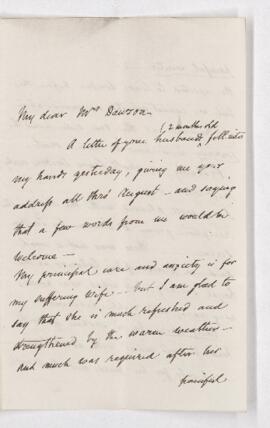 My dear Mrs Dawson.
(2 months old
A letter of your husbands fell into
my hands yesterday, giving me your
address all thro' August - and saying
that a few words from me would be
welcome -
My principal care and anxiety is for
my suffering wife - but I am glad to
say that she is much refreshed and
strengthened by the warm weather -
and much was required after her
painful